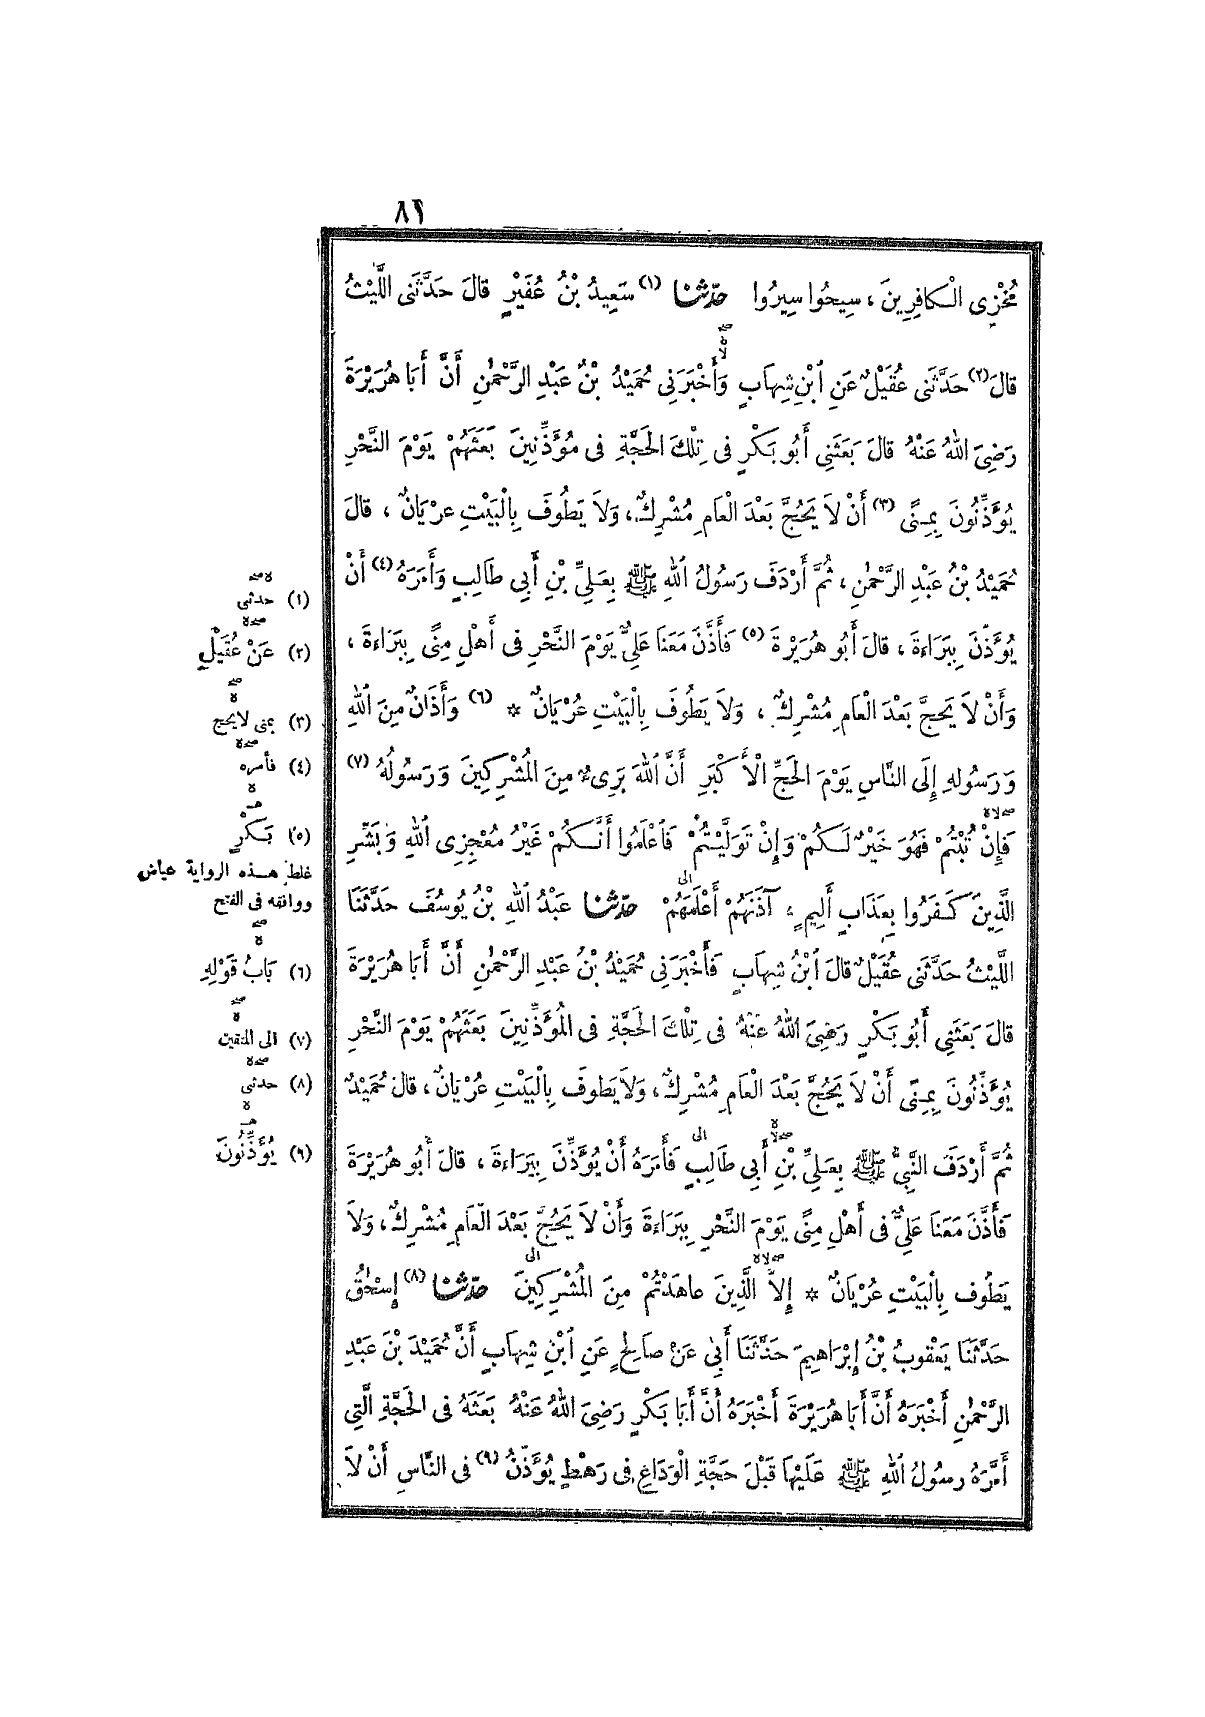 ٨١
مُخْزِى الْكَافِرِينَ ، سِيحُوا سِيرُوا حَدَّثَنَا (١) سَعِيدُ بْنُ عُفَيْرٍ قَالَ حَدَّثَنِى اللَّيْثُ
قَالَ (٢) حَدَّثَنِى عُقَيْلٌ عَنِ ابْنِ شِهَابٍ وَأَخْبَرَنِى حُمَيْدُ بْنُ عَبْدِ الرَّحْمٰنِ أَنَّ أَبَا هُرَيْرَةَ
رَضِىَ اللهُ عَنْهُ قَالَ بَعَثَنِى أَبُو بَكْرٍ فِى تِلْكَ الحَجَّةِ فِى مُؤَذِّنِينَ بَعَثَهُمْ يَوْمَ النَّحْرِ
يُؤَذِّنُونَ بِمِنًى (٣) أَنْ لاَ يَحُجَّ بَعْدَ الْعَامِ مُشْرِكٌ ، وَلاَ يَطُوفَ بِالْبَيْتِ عُرْيَانٌ ، قَالَ
حُمَيْدُ بْنُ عَبْدِ الرَّحْمٰنِ ، ثُمَّ أَرْدَفَ رَسُولُ اللهِ ﷺ بِعَلِىِّ بْنِ أَبِى طَالِبٍ وَأَمَرَهُ (٤) أَنْ
يُؤَذِّنَ بِبَرَاءَةَ ، قَالَ أَبُو هُرَيْرَةَ (٥) فَأَذَّنَ مَعَنَا عَلِىٌّ يَوْمَ النَّحْرِ فِى أَهْلِ مِنًى بِبَرَاءَةَ ،
وَأَنْ لاَ يَحُجَّ بَعْدَ الْعَامِ مُشْرِكٌ ، وَلاَ يَطُوفَ بِالْبَيْتِ عُرْيَانٌ * (٦) وَأَذَانٌ مِنَ اللهِ
وَرَسُولِهِ إِلَى النَّاسِ يَوْمَ الحَجِّ الْأَكْبَرِ أَنَّ اللهَ بَرِىءٌ مِنَ الْمُشْرِكِينَ وَرَسُولُهُ (٧)
فَإِنْ تُبْتُمْ فَهُوَ خَيْرٌ لَكُمْ وَإِنْ تَوَلَّيْتُمْ فَاعْلَمُوا أَنَّكُمْ غَيْرُ مُعْجِزِى اللهِ وَبَشِّرِ
الَّذِينَ كَفَرُوا بِعَذَابٍ أَلِيمٍ ، آذَنَهُمْ أَعْلَمَهُمْ حَدَّثَنَا عَبْدُ اللهِ بْنُ يُوسُفَ حَدَّثَنَا
اللَّيْثُ حَدَّثَنِى عُقَيْلٌ قَالَ ابْنُ شِهَابٍ فَأَخْبَرَنِى حُمَيْدُ بْنُ عَبْدِ الرَّحْمٰنِ أَنَّ أَبَا هُرَيْرَةَ
قَالَ بَعَثَنِى أَبُو بَكْرٍ رَضِىَ اللهُ عَنْهُ فِى تِلْكَ الحَجَّةِ فِى الْمُؤَذِّنِينَ بَعَثَهُمْ يَوْمَ النَّحْرِ
يُؤَذِّنُونَ بِمِنًى أَنْ لاَ يَحُجَّ بَعْدَ الْعَامِ مُشْرِكٌ ، وَلاَ يَطُوفَ بِالْبَيْتِ عُرْيَانٌ ، قَالَ حُمَيْدٌ
ثُمَّ أَرْدَفَ النَّبِىُّ ﷺ بِعَلِىِّ بْنِ أَبِى طَالِبٍ فَأَمَرَهُ أَنْ يُؤَذِّنَ بِبَرَاءَةَ ، قَالَ أَبُو هُرَيْرَةَ
فَأَذَّنَ مَعَنَا عَلِىٌّ فِى أَهْلِ مِنًى يَوْمَ النَّحْرِ بِبَرَاءَةَ وَأَنْ لاَ يَحُجَّ بَعْدَ الْعَامِ مُشْرِكٌ ، وَلاَ
يَطُوفَ بِالْبَيْتِ عُرْيَانٌ * إِلاَّ الَّذِينَ عَاهَدْتُمْ مِنَ الْمُشْرِكِينَ حَدَّثَنَا (٨) إِسْحٰقُ
حَدَّثَنَا يَعْقُوبُ بْنُ إِبْرَاهِيمَ حَدَّثَنَا أَبِى عَنْ صَالِحٍ عَنِ ابْنِ شِهَابٍ أَنَّ حُمَيْدَ بْنَ عَبْدِ
الرَّحْمٰنِ أَخْبَرَهُ أَنَّ أَبَا هُرَيْرَةَ أَخْبَرَهُ أَنَّ أَبَا بَكْرٍ رَضِىَ اللهُ عَنْهُ بَعَثَهُ فِى الحَجَّةِ الَّتِى
أَمَّرَهُ رَسُولُ اللهِ ﷺ عَلَيْهَا قَبْلَ حَجَّةِ الْوَدَاعِ فِى رَهْطٍ يُؤَذِّنُ (٩) فِى النَّاسِ أَنْ لاَ
(١) حدثنى
(٢) عَنْ عُقَيْلٍ
(٣) بمنى لايحج
(٤) فأمره
(٥) بَكْرٍ
غلط هذه الرواية عياض
ووافقه فى الفتح
(٦) بَابُ قَوْلِهِ
(٧) الى المتقين
(٨) حدثنى
(٩) يُؤَذِّنُونَ